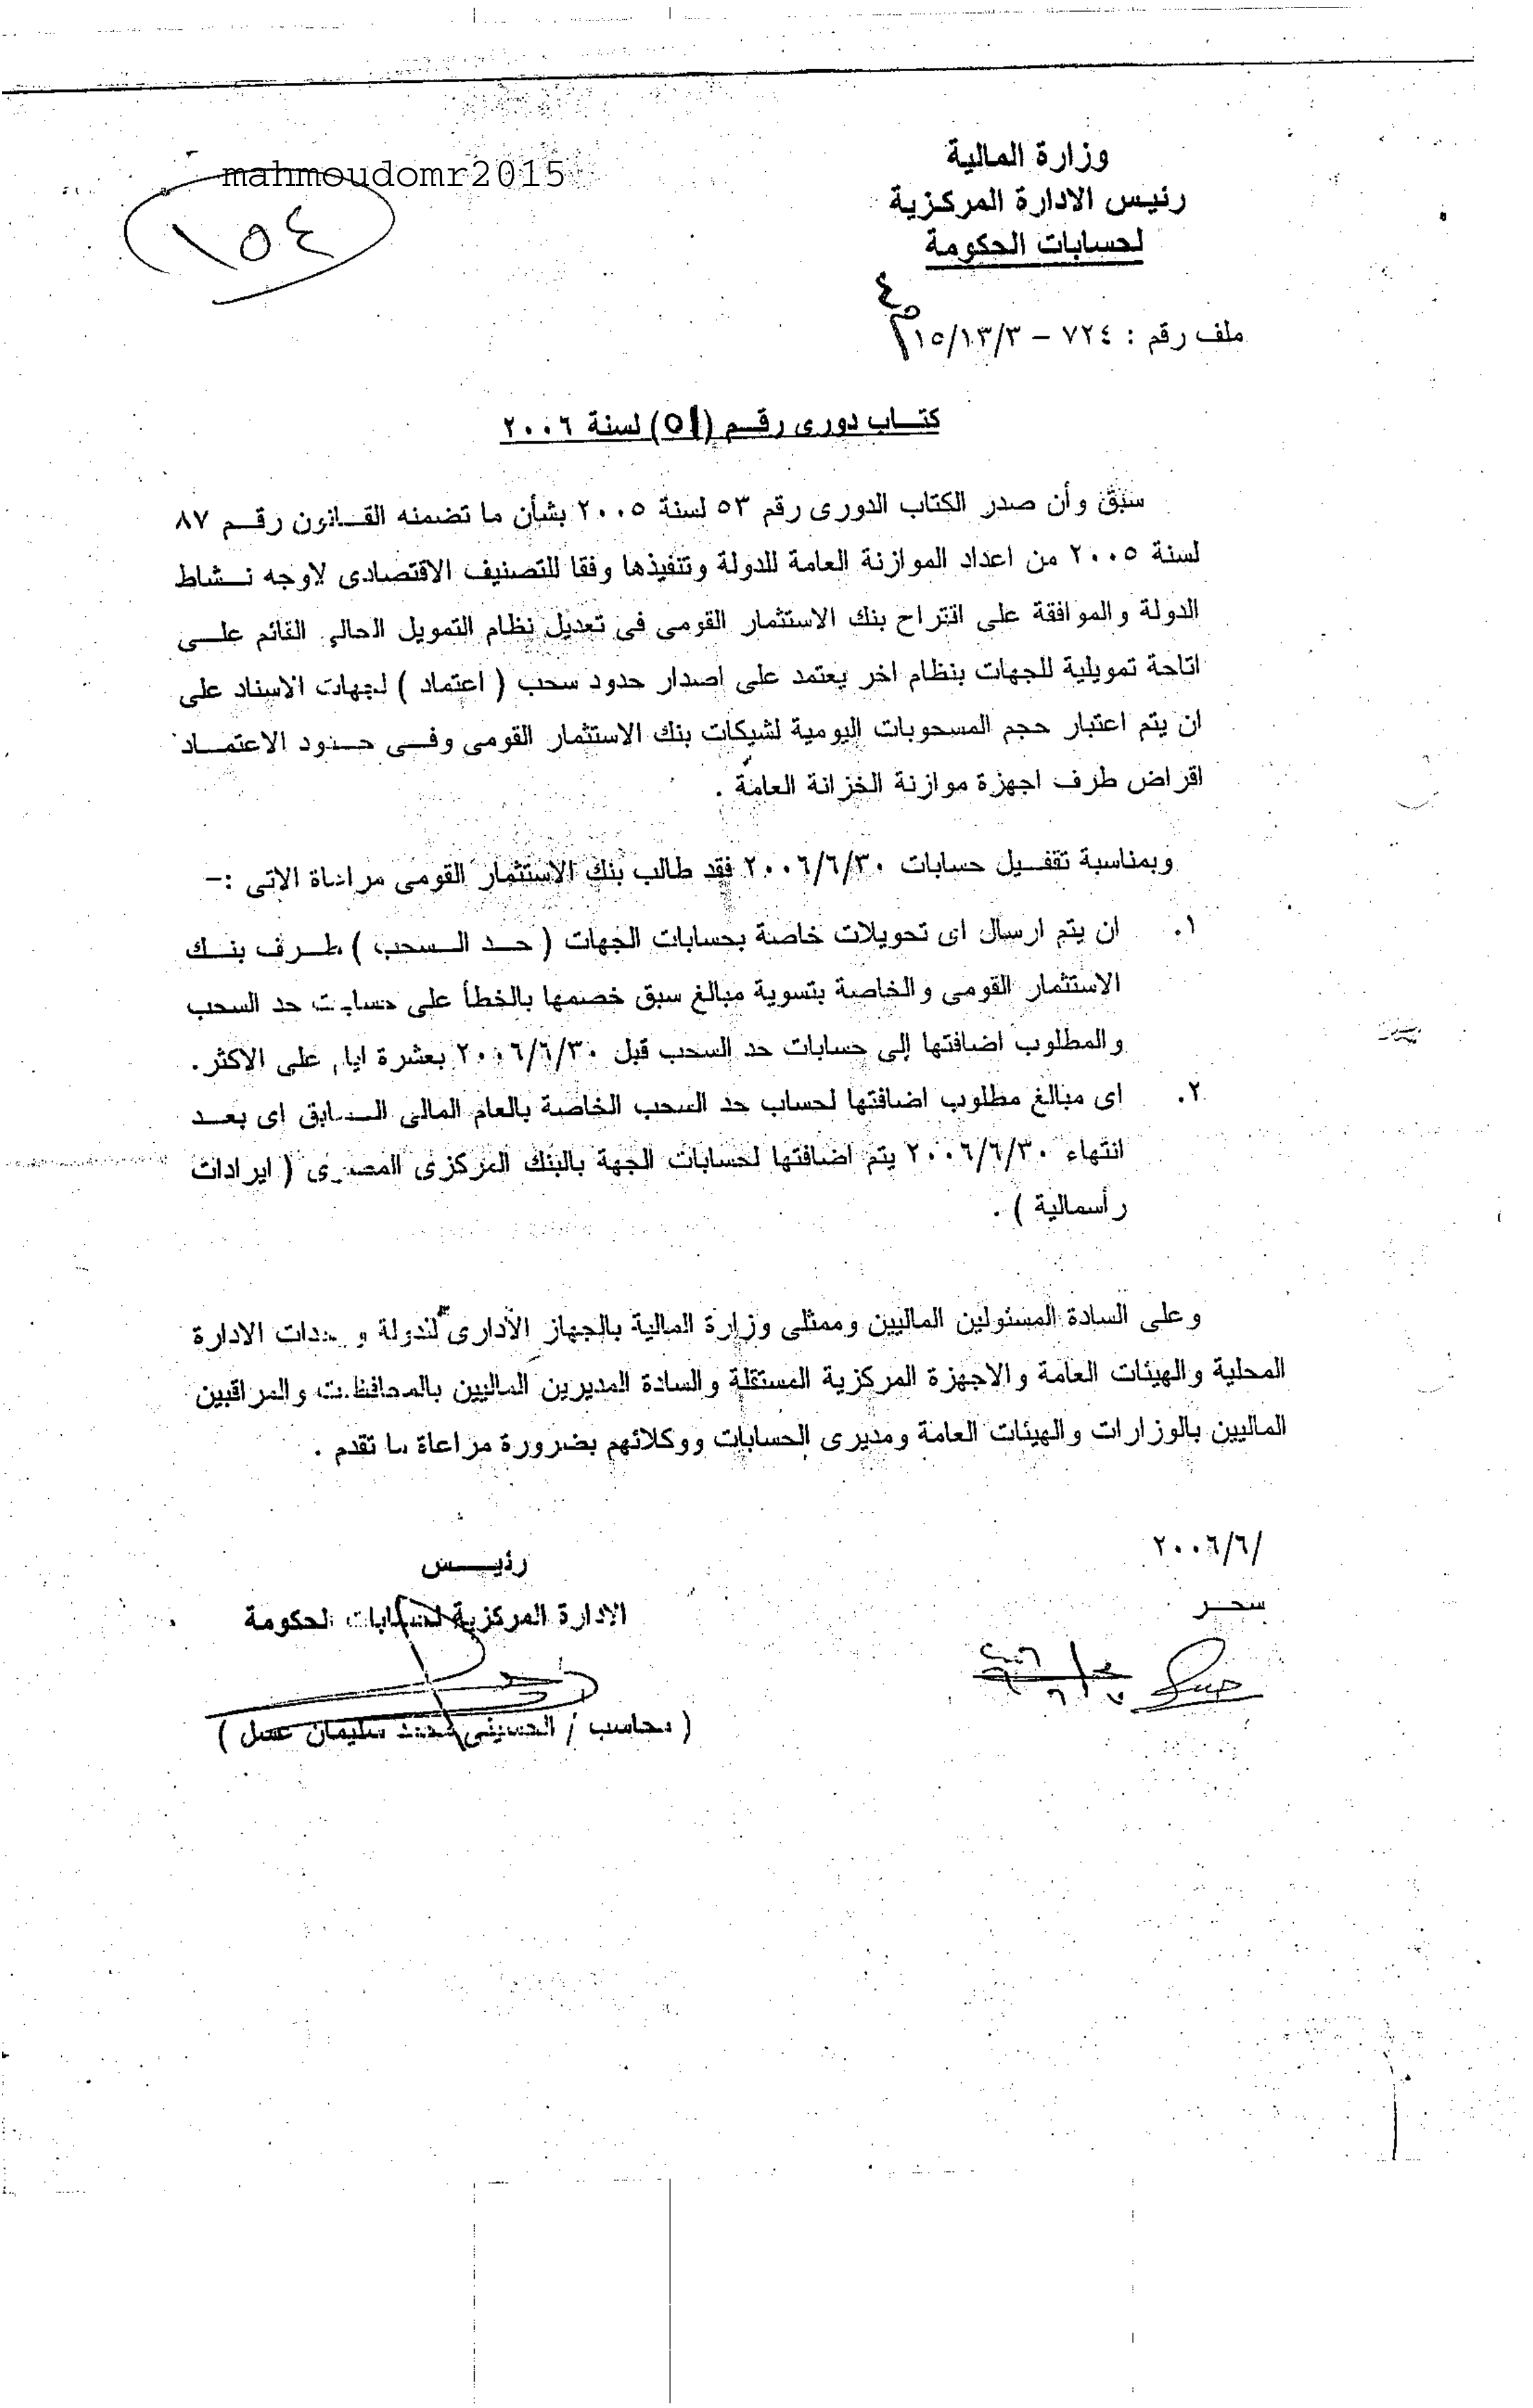 mahmoudomr2015
١٥٤
وزارة المالية
رئيس الادارة المركزية
لحسابات الحكومة
ملف رقم : ٧٢٤ – ١٥/١٣/٣
كتاب دورى رقم (٥١) لسنة ٢٠٠٦
سبق وأن صدر الكتاب الدورى رقم ٥٣ لسنة ٢٠٠٥ بشأن ما تضمنه القانون رقم ٨٧
لسنة ٢٠٠٥ من اعداد الموازنة العامة للدولة وتنفيذها وفقا للتصنيف الاقتصادى لاوجه نشاط
الدولة والموافقة على اقتراح بنك الاستثمار القومى فى تعديل نظام التمويل الحالى القائم على
اتاحة تمويلية للجهات بنظام اخر يعتمد على اصدار حدود سحب ( اعتماد ) لجهات الاسناد على
ان يتم اعتبار حجم المسحوبات اليومية لشيكات بنك الاستثمار القومى وفى حدود الاعتماد
اقراض طرف اجهزة موازنة الخزانة العامة .
وبمناسبة تقفيل حسابات ٢٠٠٦/٦/٣٠ فقد طالب بنك الاستثمار القومى مراعاة الاتى :–
١. ان يتم ارسال اى تحويلات خاصة بحسابات الجهات ( حد السحب ) طرف بنك
الاستثمار القومى والخاصة بتسوية مبالغ سبق خصمها بالخطأ على حسابات حد السحب
والمطلوب اضافتها إلى حسابات حد السحب قبل ٢٠٠٦/٦/٣٠ بعشرة ايام على الاكثر.
٢. اى مبالغ مطلوب اضافتها لحساب حد السحب الخاصة بالعام المالى السابق اى بعد
انتهاء ٢٠٠٦/٦/٣٠ يتم اضافتها لحسابات الجهة بالبنك المركزى المصرى ( ايرادات
رأسمالية ) .
وعلى السادة المسئولين الماليين وممثلى وزارة المالية بالجهاز الأدارى للدولة ووحدات الادارة
المحلية والهيئات العامة والاجهزة المركزية المستقلة والسادة المديرين الماليين بالمحافظات والمراقبين
الماليين بالوزارات والهيئات العامة ومديرى الحسابات ووكلائهم بضرورة مراعاة ما تقدم .
/٢٠٠٦/٦
سحر
رئيس
الادارة المركزية لحسابات الحكومة
( محاسب / الحسينى محمد سليمان عسل )